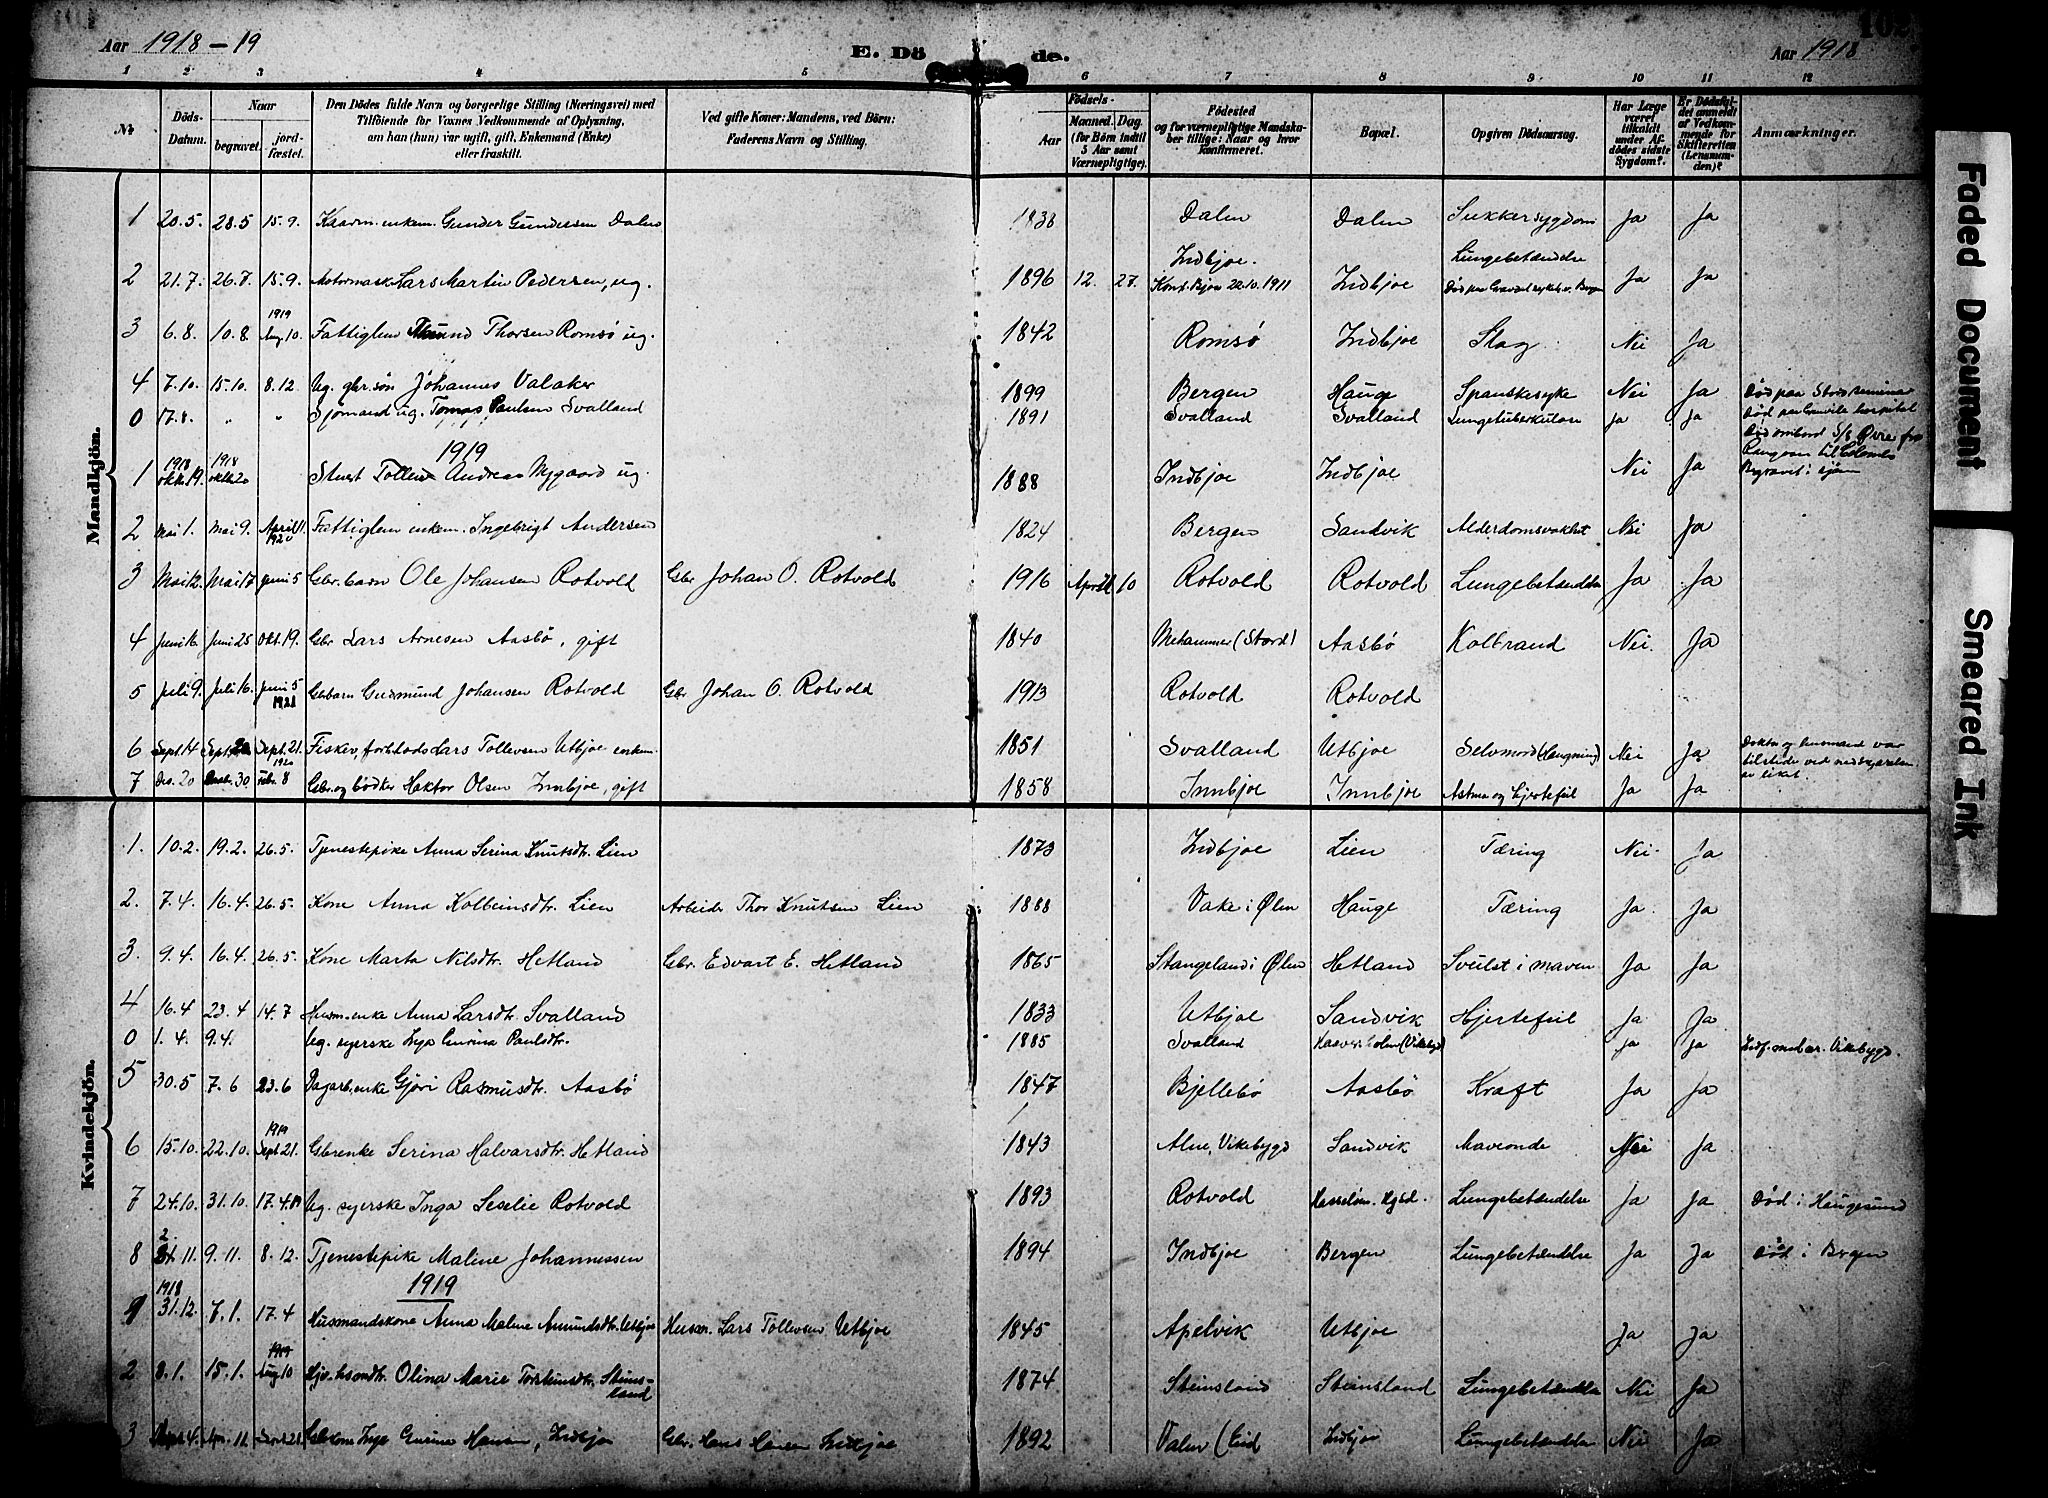 Aar 1918-19
E. Döde.
Aar 1918
102
1 2 3 4 5 6 7 8 9 10 11 12
No.
Döds-Datum.
Naar
begravet.
jordfæstet.
Den Dödes fulde Navn og borgerlige Stilling (Næringsvei) med Tilföiende for Voxnes Vedkommende af Oplysning, om han (hun) var ugift, gift, Enkemand (Enke) eller fraskilt.
Ved gifte Koner: Mandens, ved Börn: Faderens Navn og Stilling.
Födsels-
Aar
Maaned. Dag.
(for Börn indtil 5 Aar samt Værnepligtige).
Födested og for værnepligtige Mandskaber tillige: Naar og hvor konfirmeret.
Bopæl.
Opgiven Dödsaarsag.
Har Læge været tilkaldt under Afdödes sidste Sygdom?
Er Dödsfaldet anmeldt af Vedkommende for Skifteretten (Lensmanden)?
Anmærkninger.
Mandkjön.
1 20.5. 28.5 15.9. Kaarm. enkem. Gunder Gundersen Dalen 1838 Dalen Dalen Sukkersygdom Ja Ja
2 21.7. 26.7. 15.9. Motormask Lars Martin Pedersen, ug. 1896 12. 27. Indbjoe. Konf. Bjoa 22.10.1911 Indbjoe Lungebetændelse Ja Ja
3 6.8. 10.8. 1919 Aug. 10. Fattiglem Thorsen Romsø ug. 1842 Romsø Indbjoe Slag Nei Ja
4 7.10. 15.10. 8.12. Ug. gbr.søn Johannes Valaker 1899 Bergen Hauge Spanskesyke Nei Ja Død paa Stord seminar
0 17.8. " " Sjømand ug. Tomas Paulsen Svalland 1891 Svalland Svalland Lungetuberkulose ja Ja
1919
1 1918 oktr. 19. 1918 oktbr. 20 Stuert Andreas Nygaard ug. 1888 Indbjoe Indbjoe Nei Ja Død ombord S/S Øvre fra Rangoon til Colombo Begravet i sjøen
2 Mai 1. Mai 9. April 11. 1920 Fattiglem enkem. Ingebrigt Andersen 1824 Bergen Sandvik Alderdomsvakhet Nei Ja
3 Mai 12. Mai 17 Juni 5 Gbr. barn Ole Johansen Rotvold Gbr Johan O. Rotvold 1916 April 10 Rotvold Rotvold Lungebetændelse Ja Ja
4 Juni 16. Juni 25 Okt. 19. Gbr Lars Arnesen Aasbø, gift 1840 Mehammer (Stord) Aasbø Koltbrand Nei. Ja
5 Juli 9. Juli 16. Juni 5 1921 Gbbarn Gudmund Johansen Rotvold Gbr. Johan O. Rotvold 1913 Rotvold Rotvold
6 Sept. 14 Sept. 20 Sept. 21. Fisker, Lars Tollevsen Utbjoe enkem. 1851 Svalland Utbjoe Selvmord (Hængning) Nei Ja Doktor og husmand var tilstede ved nedskjæringen
7 Des. 20 30 1920 Febr. 8 Gbr. og bødker Haktor Olsen Innbjoe, gift 1858 Innbjoe Innbjoe Astma og hjertefeil Ja Ja
Kvindekjön.
1. 10.2. 19.2. 26.5. Tjenestepike Anna Serina Knutsdtr. Lien 1873 Indbjoe Lien Tæring Nei. Ja
2. 7.4. 16.4. 26.5. Kone Anna Kolbeinsdtr. Lien Arbeider Thor Knutsen Lien 1888 Vake i Ølen Hauge Tæring Ja. Ja
3. 9.4. 16.4. 26.5. Kone Marta Nilsdtr. Hetland Gbr. Edvart E. Hetland 1865 Stangeland i Ølen Hetland Svulst i maven Ja Ja
4 16.4 23.4 14.7 Husm. enke Anna Larsdtr. Svalland 1833 Utbjoe Sandvik Hjertefeil Ja Ja
0 1.4. 9.4. Ug. syerske Inga Gurina Paulsdtr. 1885 Svalland ja Ja Indf. Vikebygd.
5 30.5 7.6 23.6 Dagarb. enke Gjøri Rasmusdtr. Aasbø 1847 Bjellebø Aasbø Kræft Ja Ja
6 15.10. 22.10. 1919 Sept 21. Gbrenke Serina Halvarsdtr. Hetland 1843 Alne, Vikebygd Sandvik Maveonde Nei Ja
7 24.10. 31.10. 17.4.19 Ug. syerske Inga Seselie Rotvold 1893 Rotvold Lungebetændelse Ja Ja Død i Haugesund
8 2. 11. 9.11. 8.12. Tjenestepike Maline Johannessen 1894 Indbjoe Bergen Lungebetændelse Ja Ja Død i Bergen
1919
1 1918 31.12. 7.1. 17.4 Husmandskone Anna Maline Amundsdtr. Utbjoe Husm. Lars Tollevsen Utbjoe 1845 Apelvik Utbjoe Ja Ja
2 8.1. 15.1. 1919 Aug 10 Olina Marie Torsteinsdtr. Steinsland 1874 Steinsland Steinsland Lungebetændelse Nei Ja
3 Gbrkone Inga Gurine Hansen, Indbjoe Gbr. Hans Hansen Indbjoe 1892 Valen (Eid Indbjoe Lungebetændelse Nei Ja
Faded Document
Smeared Ink